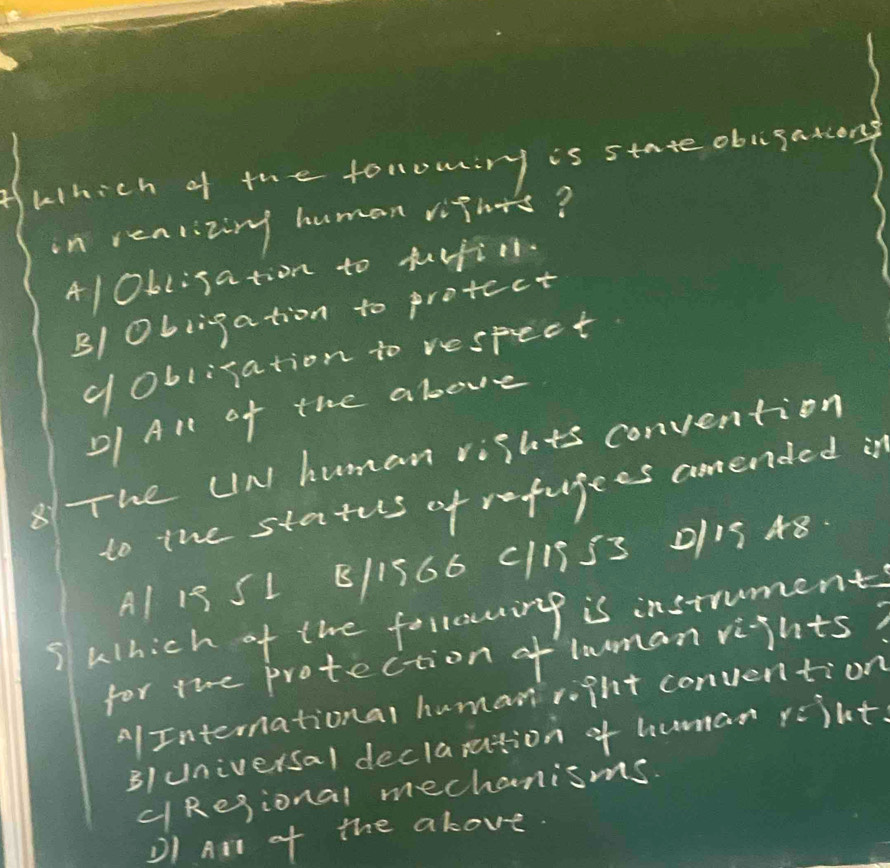 7/ Which of the following is state obligations
in realizing human rights?
A/ Obligation to fulfill.
B/ Obligation to protect
C/ Obligation to respect.
D/ All of the above.
8/ The UN human rights convention
to the status of refugees amended in
A/ 1951 B/1966 C/1953 D/1948.
9/ Which of the following is instruments
for the protection of human rights?
A/ International human right convention
B/ Universal declaration of human rights
C/ Regional mechanisms.
D/ All of the above.